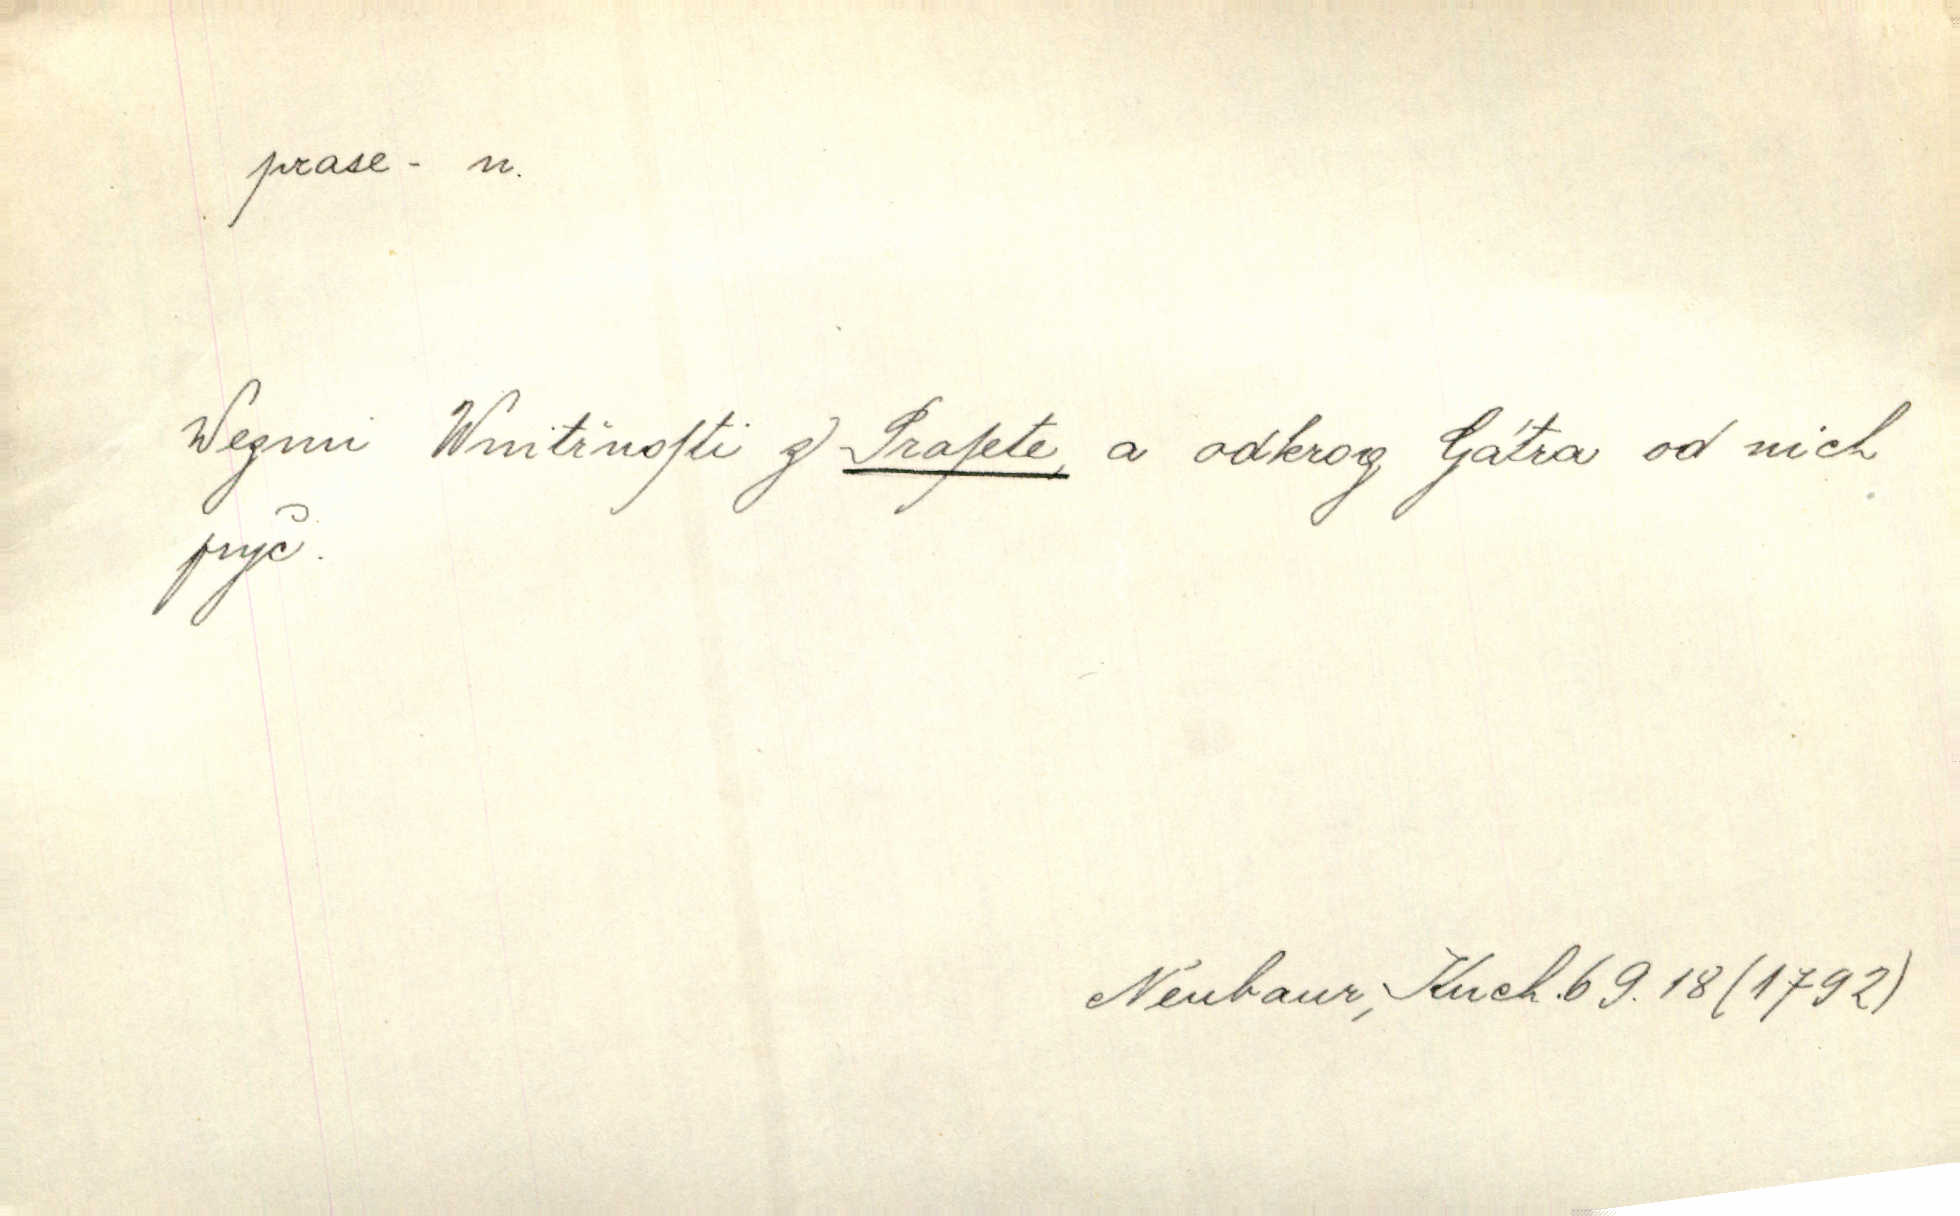 prase - n.
Wezmi Wnitřnoſti z Praſete, a odkrog Gátra od nich
pryč.
Neubaur, Kuch. 69. 18 (1792)